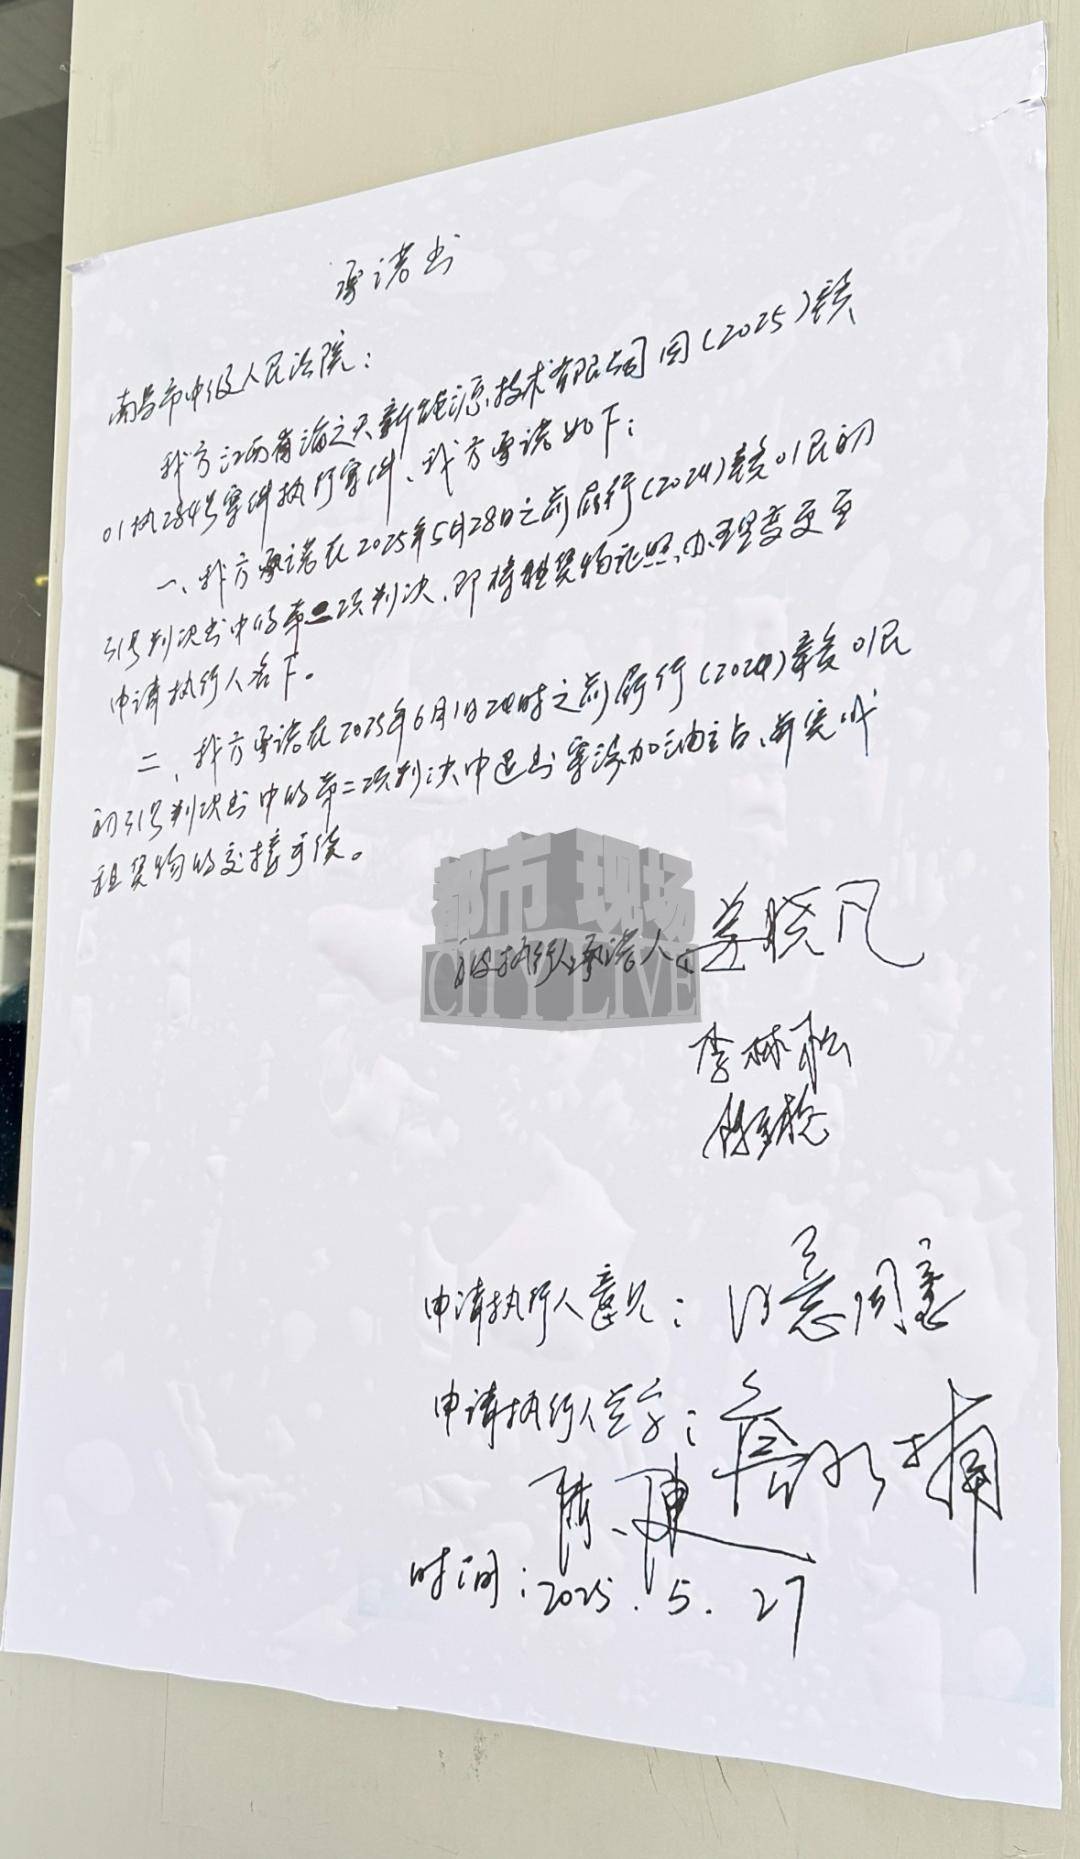 承诺书
南昌市中级人民法院：
我方江西省海之天新能源技术有限公司因(2025)赣
01执284号案件执行案件、我方承诺如下：
一、我方承诺在2025年5月28日之前履行(2024)赣01民初
31号判决书中的第二项判决，即将租赁物证照办理变更至
申请执行人名下。
二、我方承诺在2025年6月1日24时之前履行(2024)赣01民
初31号判决书中的第二项判决中退出案涉加油站、并完成
租赁物的交接手续。
都市现场
CITY LIVE
被执行人承诺人：姜晓凡
李林松
申请执行人意见：同意
申请执行人签字：
陈
时间：2025.5.27